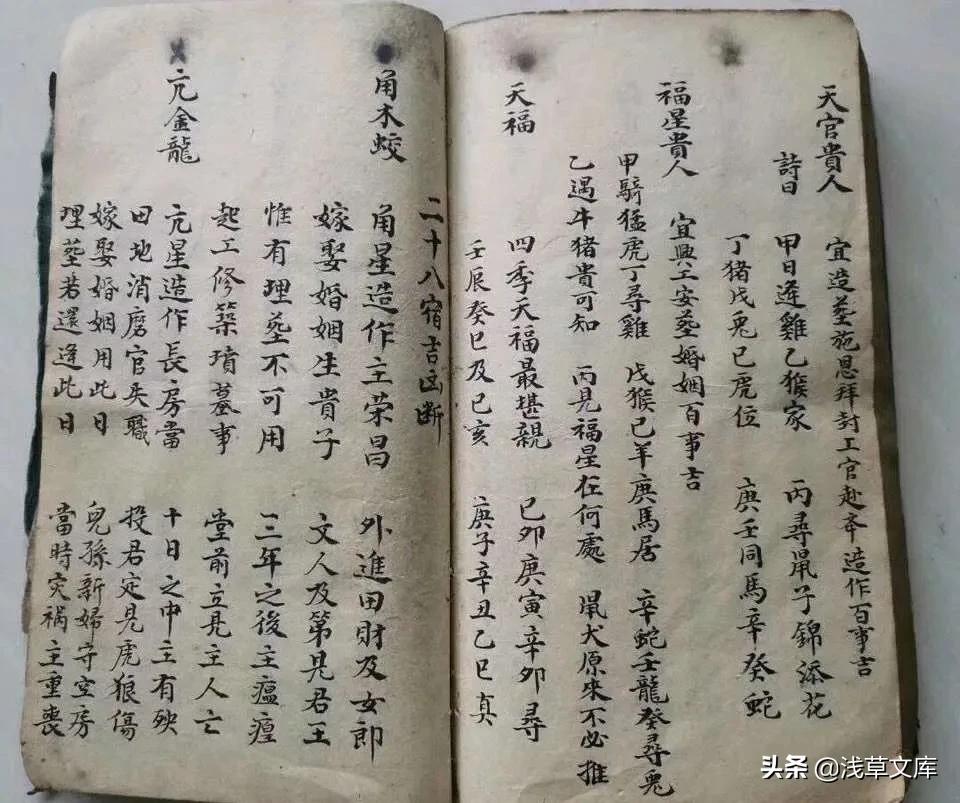 天官貴人
宜造塟施恩拜封工官赴任造作百事吉
詩曰
甲日逢雞乙猴家 丙尋鼠子錦添花
丁猪戊兎已虎位 庚壬同馬辛癸蛇
福星貴人
宜興工安塟婚姻百事吉
甲騎猛虎丁尋雞 戊猴已羊庚馬居 辛蛇壬龍癸尋兎
乙遇牛猪貴可知 丙見福星在何處 鼠犬原來不必推
天福
四季天福最堪親 已卯庚寅辛卯尋
壬辰癸巳及已亥 庚子辛丑乙巳真
二十八宿吉凶断
角木蛟
角星造作主荣昌 外進田財及女郎
嫁娶婚姻生貴子 文人及第見君王
惟有理塟不可用 三年之後主瘟瘽
起工修築墳墓事 堂前立見主人亡
亢金龍
亢星造作長房當 十日之中主有殃
田地消磨官失職 投君定見虎狼傷
嫁娶婚姻用此日 兒孫新婦守空房
理塟若還逢此日 當時灾禍主重喪
头条 @浅草文库